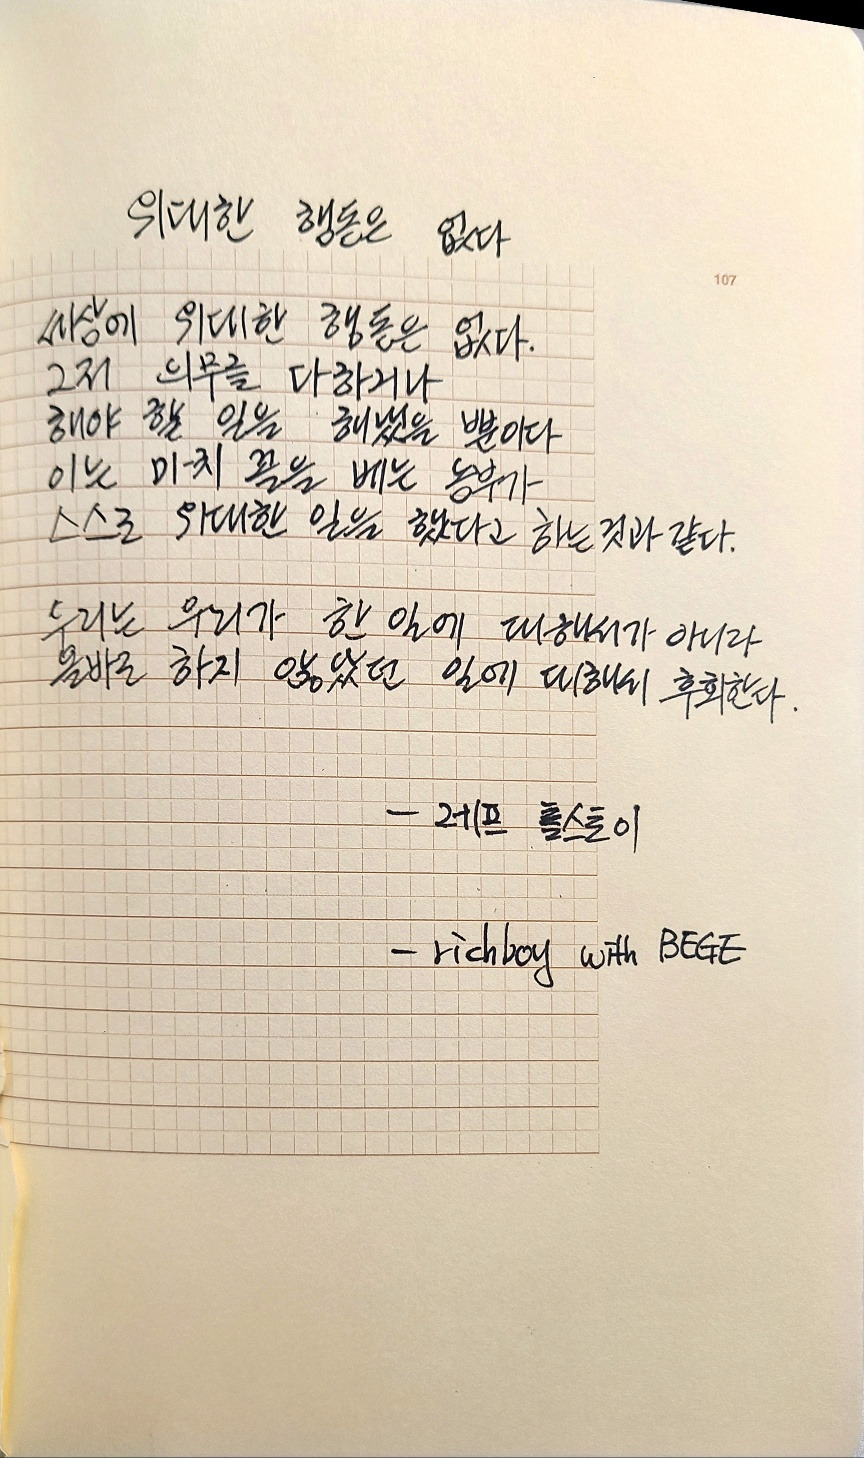 위대한 행동은 없다
107
세상에 위대한 행동은 없다.
그저 의무를 다하거나
해야 할 일을 해냈을 뿐이다
이는 마치 꼴을 베는 농부가
스스로 위대한 일을 했다고 하는것과 같다.
우리는 우리가 한 일에 대해서가 아니라
올바로 하지 않았던 일에 대해서 후회한다.
- 레프 톨스토이
- richboy with BEGE